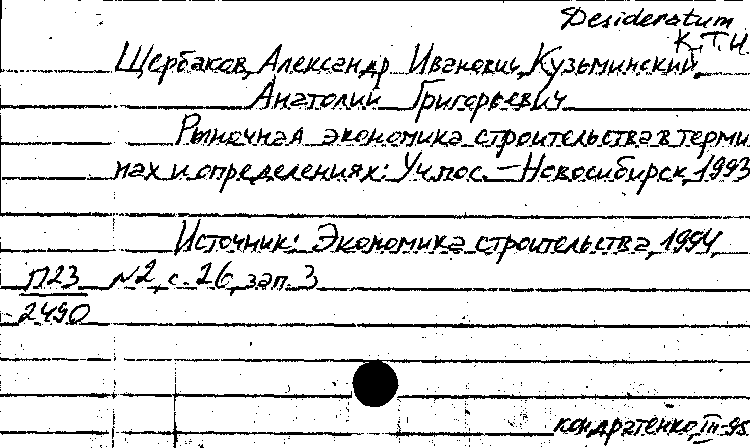 Desideratum
К.Т.Н.
Щербаков, Александр Иванович, Кузьминский,
Анатолий Григорьевич
Рыночная экономика строительства в терми
нах и определениях: Уч. пос. – Новосибирск, 1993
Источник: Экономика строительства, 1994,
П23 N2, с. 26, зап. 3
2490
Кондратенко, III-98